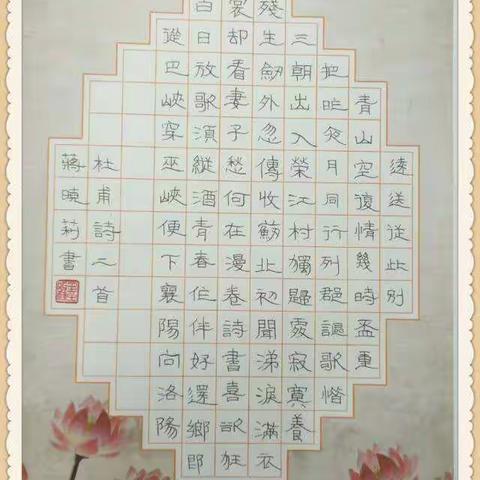 遠送從此別
青山空復情幾時盃重
把昨夜月同行列郡謳歌惜
三朝出入榮江村獨歸處寂寞養
殘生劍外忽傳收薊北初聞涕淚滿衣
裳却看妻子愁何在漫卷詩書喜欲狂
白日放歌須縱酒青春作伴好還鄉即
從巴峽穿巫峽便下襄陽向洛陽
杜甫詩二首
蔣曉莉書